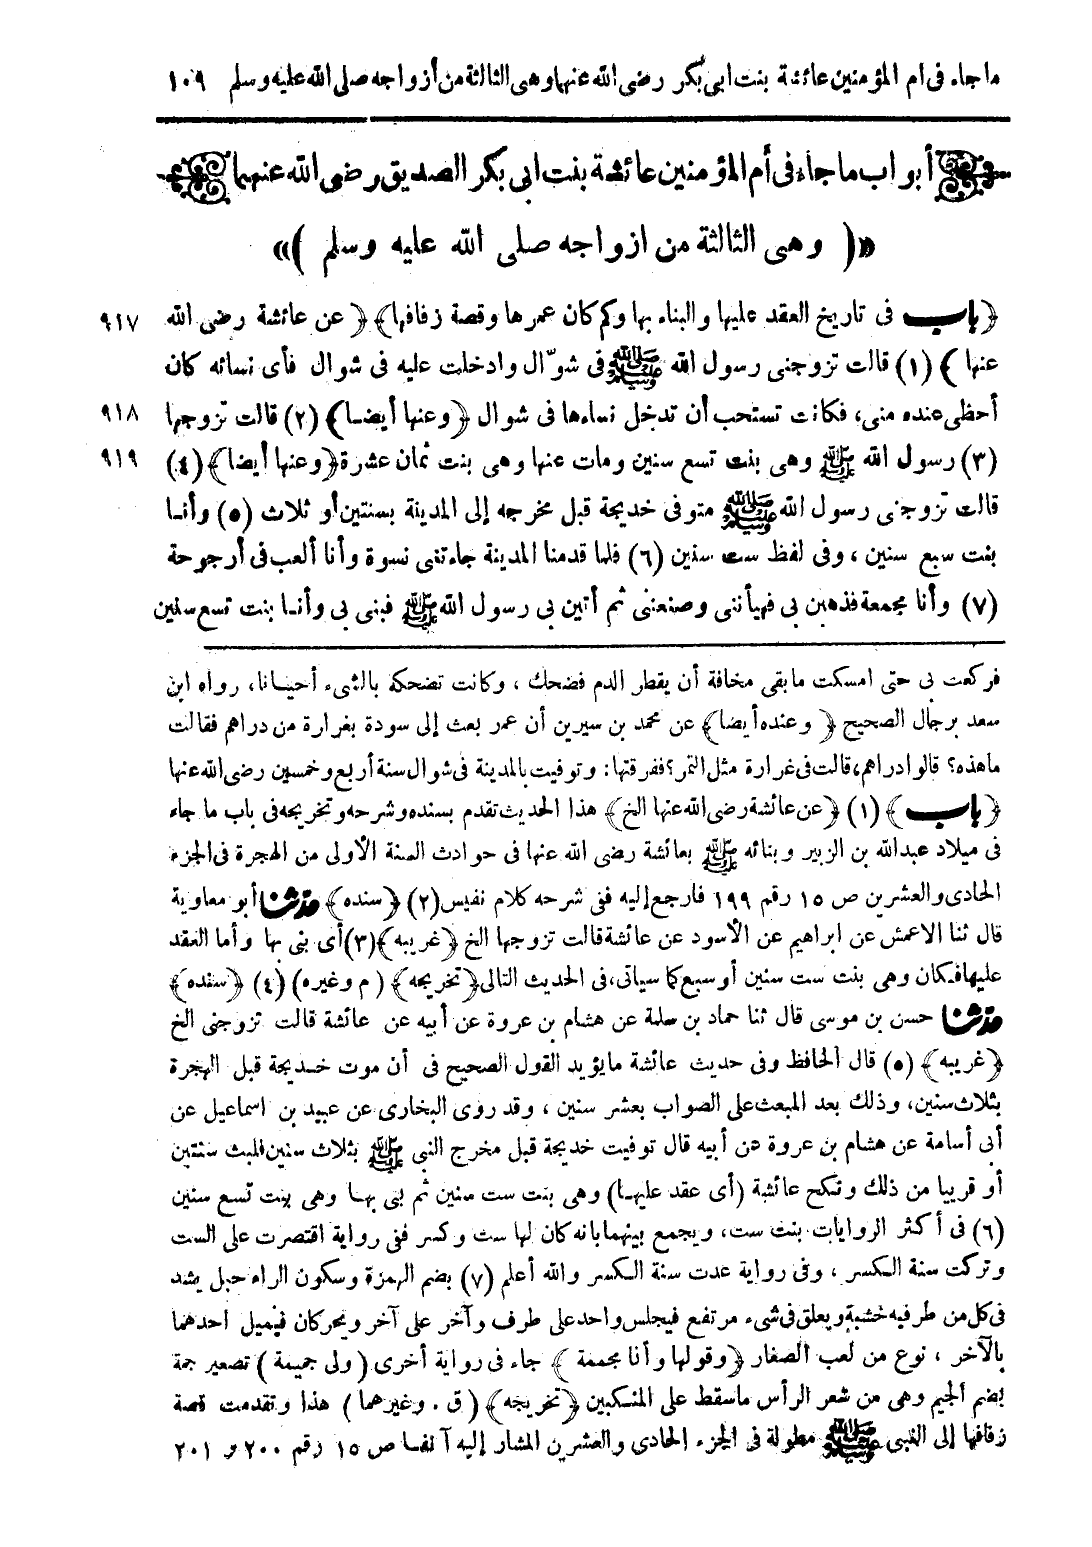 ما جاء فى ام المؤمنين عائشة بنت ابى بكر رضى الله عنها وهى الثالثة من أزواجه صلى الله عليه وسلم ١٠٩
أبواب ما جاء فى أم المؤمنين عائشة بنت ابى بكر الصديق رضى الله عنهما
«( وهى الثالثة من ازواجه صلى الله عليه وسلم )»
﴿باب فى تاريخ العقد عليها والبناء بها وكم كان عمرها وقصة زفافها﴾ ﴿ عن عائشة رضى الله ٩١٧
عنها ﴾ (١) قالت تزوجنى رسول الله ﷺ فى شوّال وادخلت عليه فى شوال فأى نسائه كان
أحظى عنده منى، فكانت تستحب أن تدخل نساءها فى شوال ﴿وعنها أيضا﴾ (٢) قالت تزوجها ٩١٨
(٣) رسول الله ﷺ وهى بنت تسع سنين ومات عنها وهى بنت ثمان عشرة ﴿وعنها أيضا﴾ (٤) ٩١٩
قالت تزوجنى رسول الله ﷺ متوفى خديجة قبل مخرجه إلى المدينة بسنتين أو ثلاث (٥) وأنا
بنت سبع سنين ، وفى لفظ ست سنين (٦) فلما قدمنا المدينة جاءتنى نسوة وأنا ألعب فى أرجوحة
(٧) وأنا مجمعة فذهبن بى فهيأننى وصنعننى ثم أتين بى رسول الله ﷺ فبنى بى وأنا بنت تسع سنين
فركعت بى حتى امسكت ما بقى مخافة أن يقطر الدم فضحك ، وكانت تضحكه بالشىء أحيانا، رواه ابن
سعد برجال الصحيح ﴿ وعنده أيضا﴾ عن محمد بن سيرين أن عمر بعث إلى سودة بغرارة من دراهم فقالت
ما هذه؟ قالوا دراهم، قالت فى غرارة مثل التمر؟ ففرقتها: وتوفيت بالمدينة فى شوال سنة أربع وخمسين رضى الله عنها
﴿باب﴾ (١) ﴿عن عائشة رضى الله عنها الخ﴾ هذا الحديث تقدم بسنده وشرحه وتخريجه فى باب ما جاء
فى ميلاد عبدالله بن الزبير وبنائه ﷺ بعائشة رضى الله عنها فى حوادث السنة الأولى من الهجرة فى الجزء
الحادى والعشرين ص ١٥ رقم ١٩٩ فارجع إليه ففى شرحه كلام نفيس (٢) ﴿سنده﴾ حدثنا أبو معاوية
قال ثنا الاعمش عن ابراهيم عن الأسود عن عائشة قالت تزوجها الخ ﴿غريبه﴾ (٣) أى بنى بها وأما العقد
عليها فكان وهى بنت ست سنين أو سبع كما سيأتى، فى الحديث التالى ﴿تخريجه﴾ ( م وغيره) (٤) ﴿سنده﴾
حدثنا حسن بن موسى قال ثنا حماد بن سلمة عن هشام بن عروة عن أبيه عن عائشة قالت تزوجنى الخ
﴿غريبه﴾ (٥) قال الحافظ وفى حديث عائشة ما يؤيد القول الصحيح فى أن موت خديجة قبل الهجرة
بثلاث سنين، وذلك بعد المبعث على الصواب بعشر سنين ، وقد روى البخارى عن عبيد بن اسماعيل عن
أبى أسامة عن هشام بن عروة عن أبيه قال توفيت خديجة قبل مخرج النبى ﷺ بثلاث سنين فلبث سنتين
أو قريبا من ذلك ونكح عائشة (أى عقد عليها) وهى بنت ست سنين ثم بنى بها وهى بنت تسع سنين
(٦) فى أكثر الروايات بنت ست، ويجمع بينهما بانه كان لها ست وكسر ففى رواية اقتصرت على الست
وتركت سنة الكسر ، وفى رواية عدت سنة الكسر والله أعلم (٧) بضم الهمزة وسكون الراء حبل يشد
فى كل من طرفيه خشبة ويعلق فى شىء مرتفع فيجلس واحد على طرف وآخر على آخر ويحركان فيميل احدهما
بالآخر ، نوع من لعب الصغار ﴿وقولها وأنا مجمعة ﴾ جاء فى رواية أخرى (ولى جميمة ) تصغير جمة
بضم الجيم وهى من شعر الرأس ما سقط على المنكبين ﴿تخريجه﴾ ( ق . وغيرهما ) هذا وتقدمت قصة
زفافها إلى النبى ﷺ مطولة فى الجزء الحادى والعشرين المشار إليه آنفا ص ١٥ رقم ٢٠٠ و ٢٠١